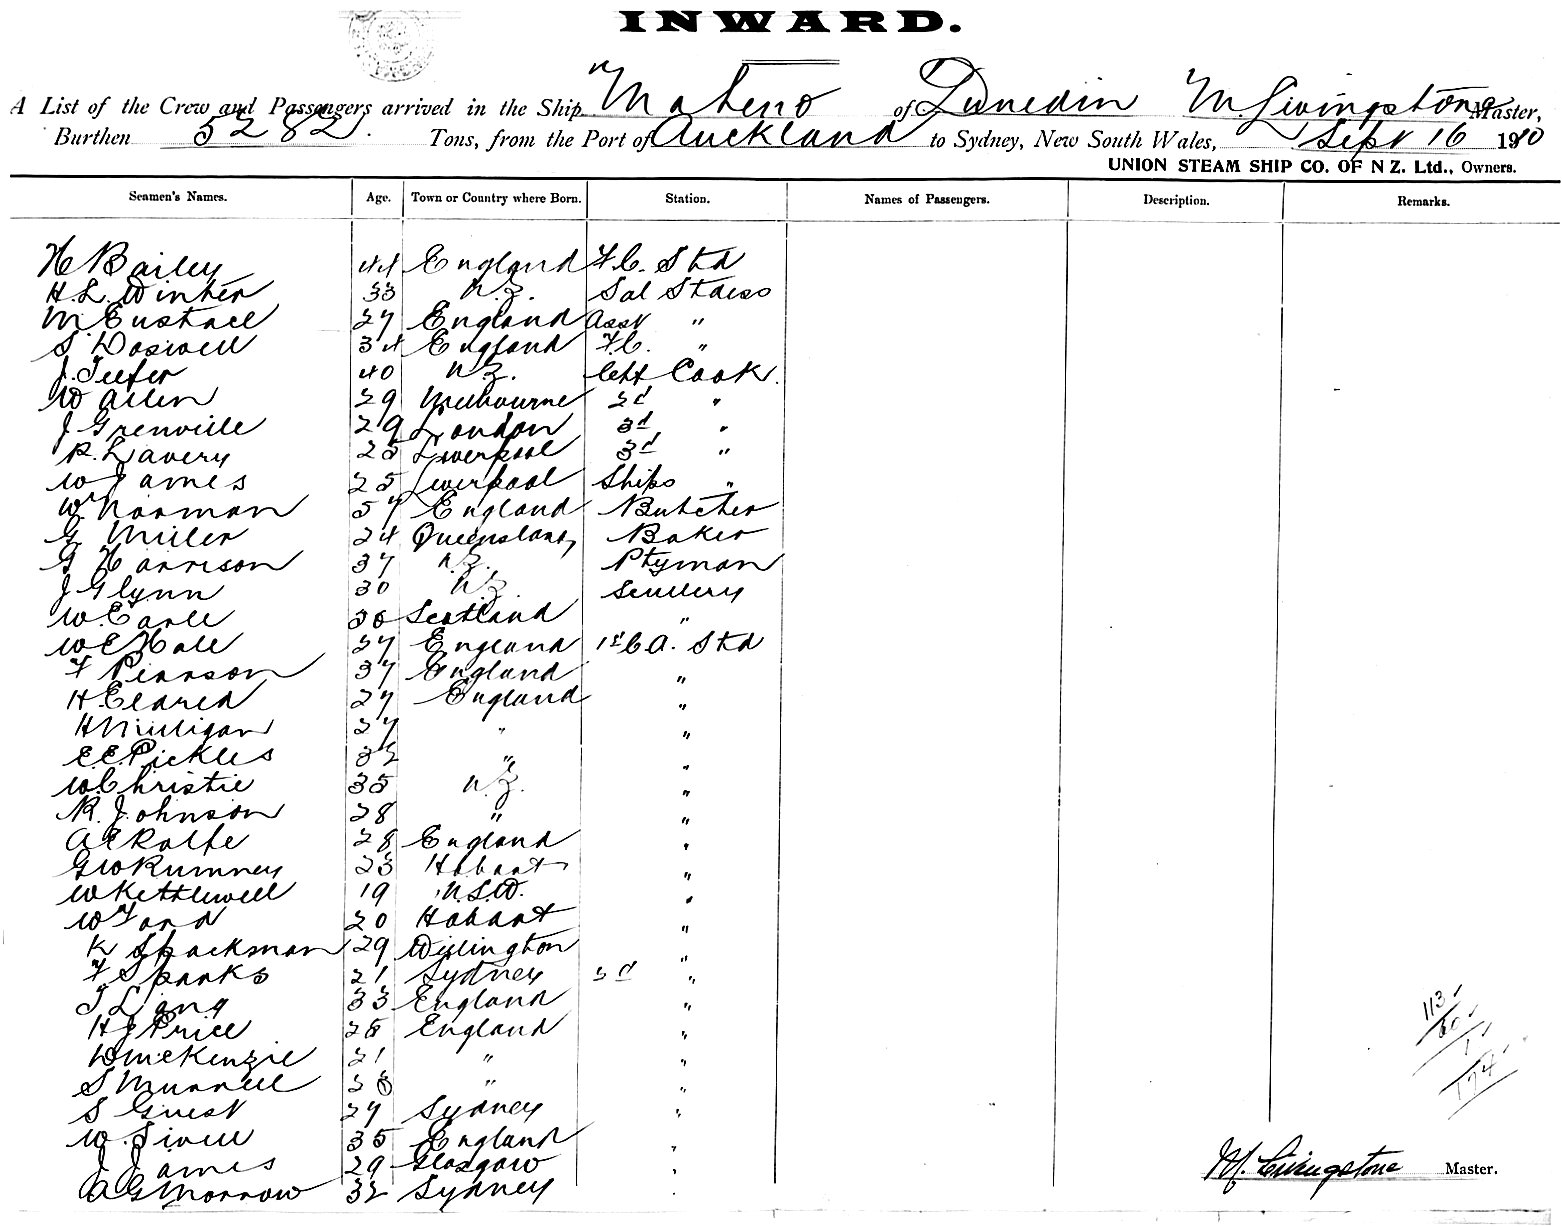 INWARD.
A List of the Crew and Passengers arrived in the Ship "Maheno of Dunedin M. Livingstone Master,
Burthen 5282. Tons, from the Port of Auckland to Sydney, New South Wales, Sept 16 1910
UNION STEAM SHIP CO. OF N Z. Ltd., Owners.
Seamen's Names. Age. Town or Country where Born. Station. Names of Passengers. Description. Remarks.
H Bailey 44 England F.C. Std
H. L. Winter 33 N.Z. Sal Stdess
M Eustace 27 England Asst "
S Doswell 34 England F.C. "
J. Teefer 40 N.Z. Cook.
W Allen 29 Melbourne 2d "
J Grenville 29 London 3d "
R. Lavery 25 Liverpool 3d "
W James 25 Liverpool Ships "
W Norman 57 England Butcher
G Miller 24 Queensland Baker
G Harrison 37 N.Z. Ptyman
J Glynn 30 N.Z. Scullery
W. Earle Scotland "
W E Hall 27 England 1st C.A. Std
F Pearson 37 England "
H. Eldred 27 England "
H Mulligan 27 " "
E.E. Pickles 32 " "
W. Christie 35 N.Z. "
R. Johnson 28 " "
A E Rolfe 28 England "
G W Rumney 23 Hobart "
W Kethlewell 19 N.S.W. "
W Ford 20 Hobart "
K Shackman 29 Wellington "
F Sparks 21 Sydney "
T Lang 33 England "
H J Price 28 England "
D McKenzie 21 " "
S Murrell " "
S Guest 27 Sydney "
W. Sivell 35 England "
J James 29 Glasgow "
A G Morrow 32 Sydney
113
60
1
174
M. Livingstone Master.